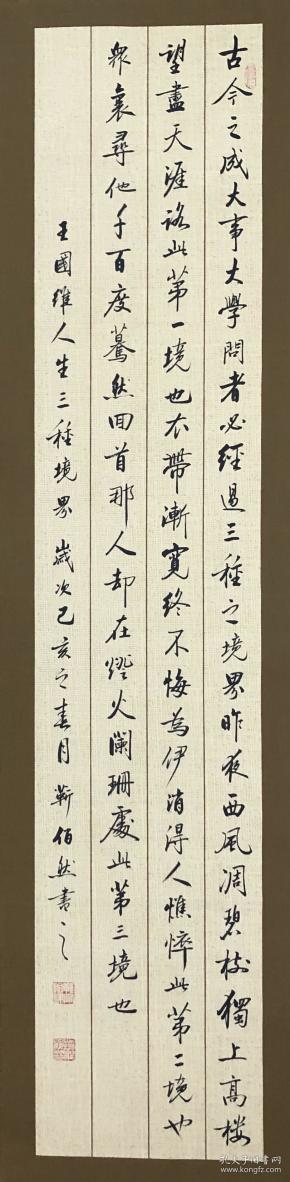 古今之成大事大學問者必經過三種之境界昨夜西風凋碧樹獨上高楼
望盡天涯路此第一境也衣帶漸寬終不悔為伊消得人憔悴此第二境也
衆裏尋他千百度驀然回首那人却在燈火闌珊處此第三境也
王國維人生三種境界歲次己亥之春月靳佰然書之
孔夫子旧书网
www.kongfz.com